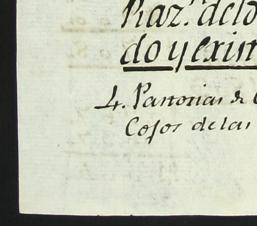 Raz.ⁿ delo
do y exim
4. Pastorias de
Cofos de las